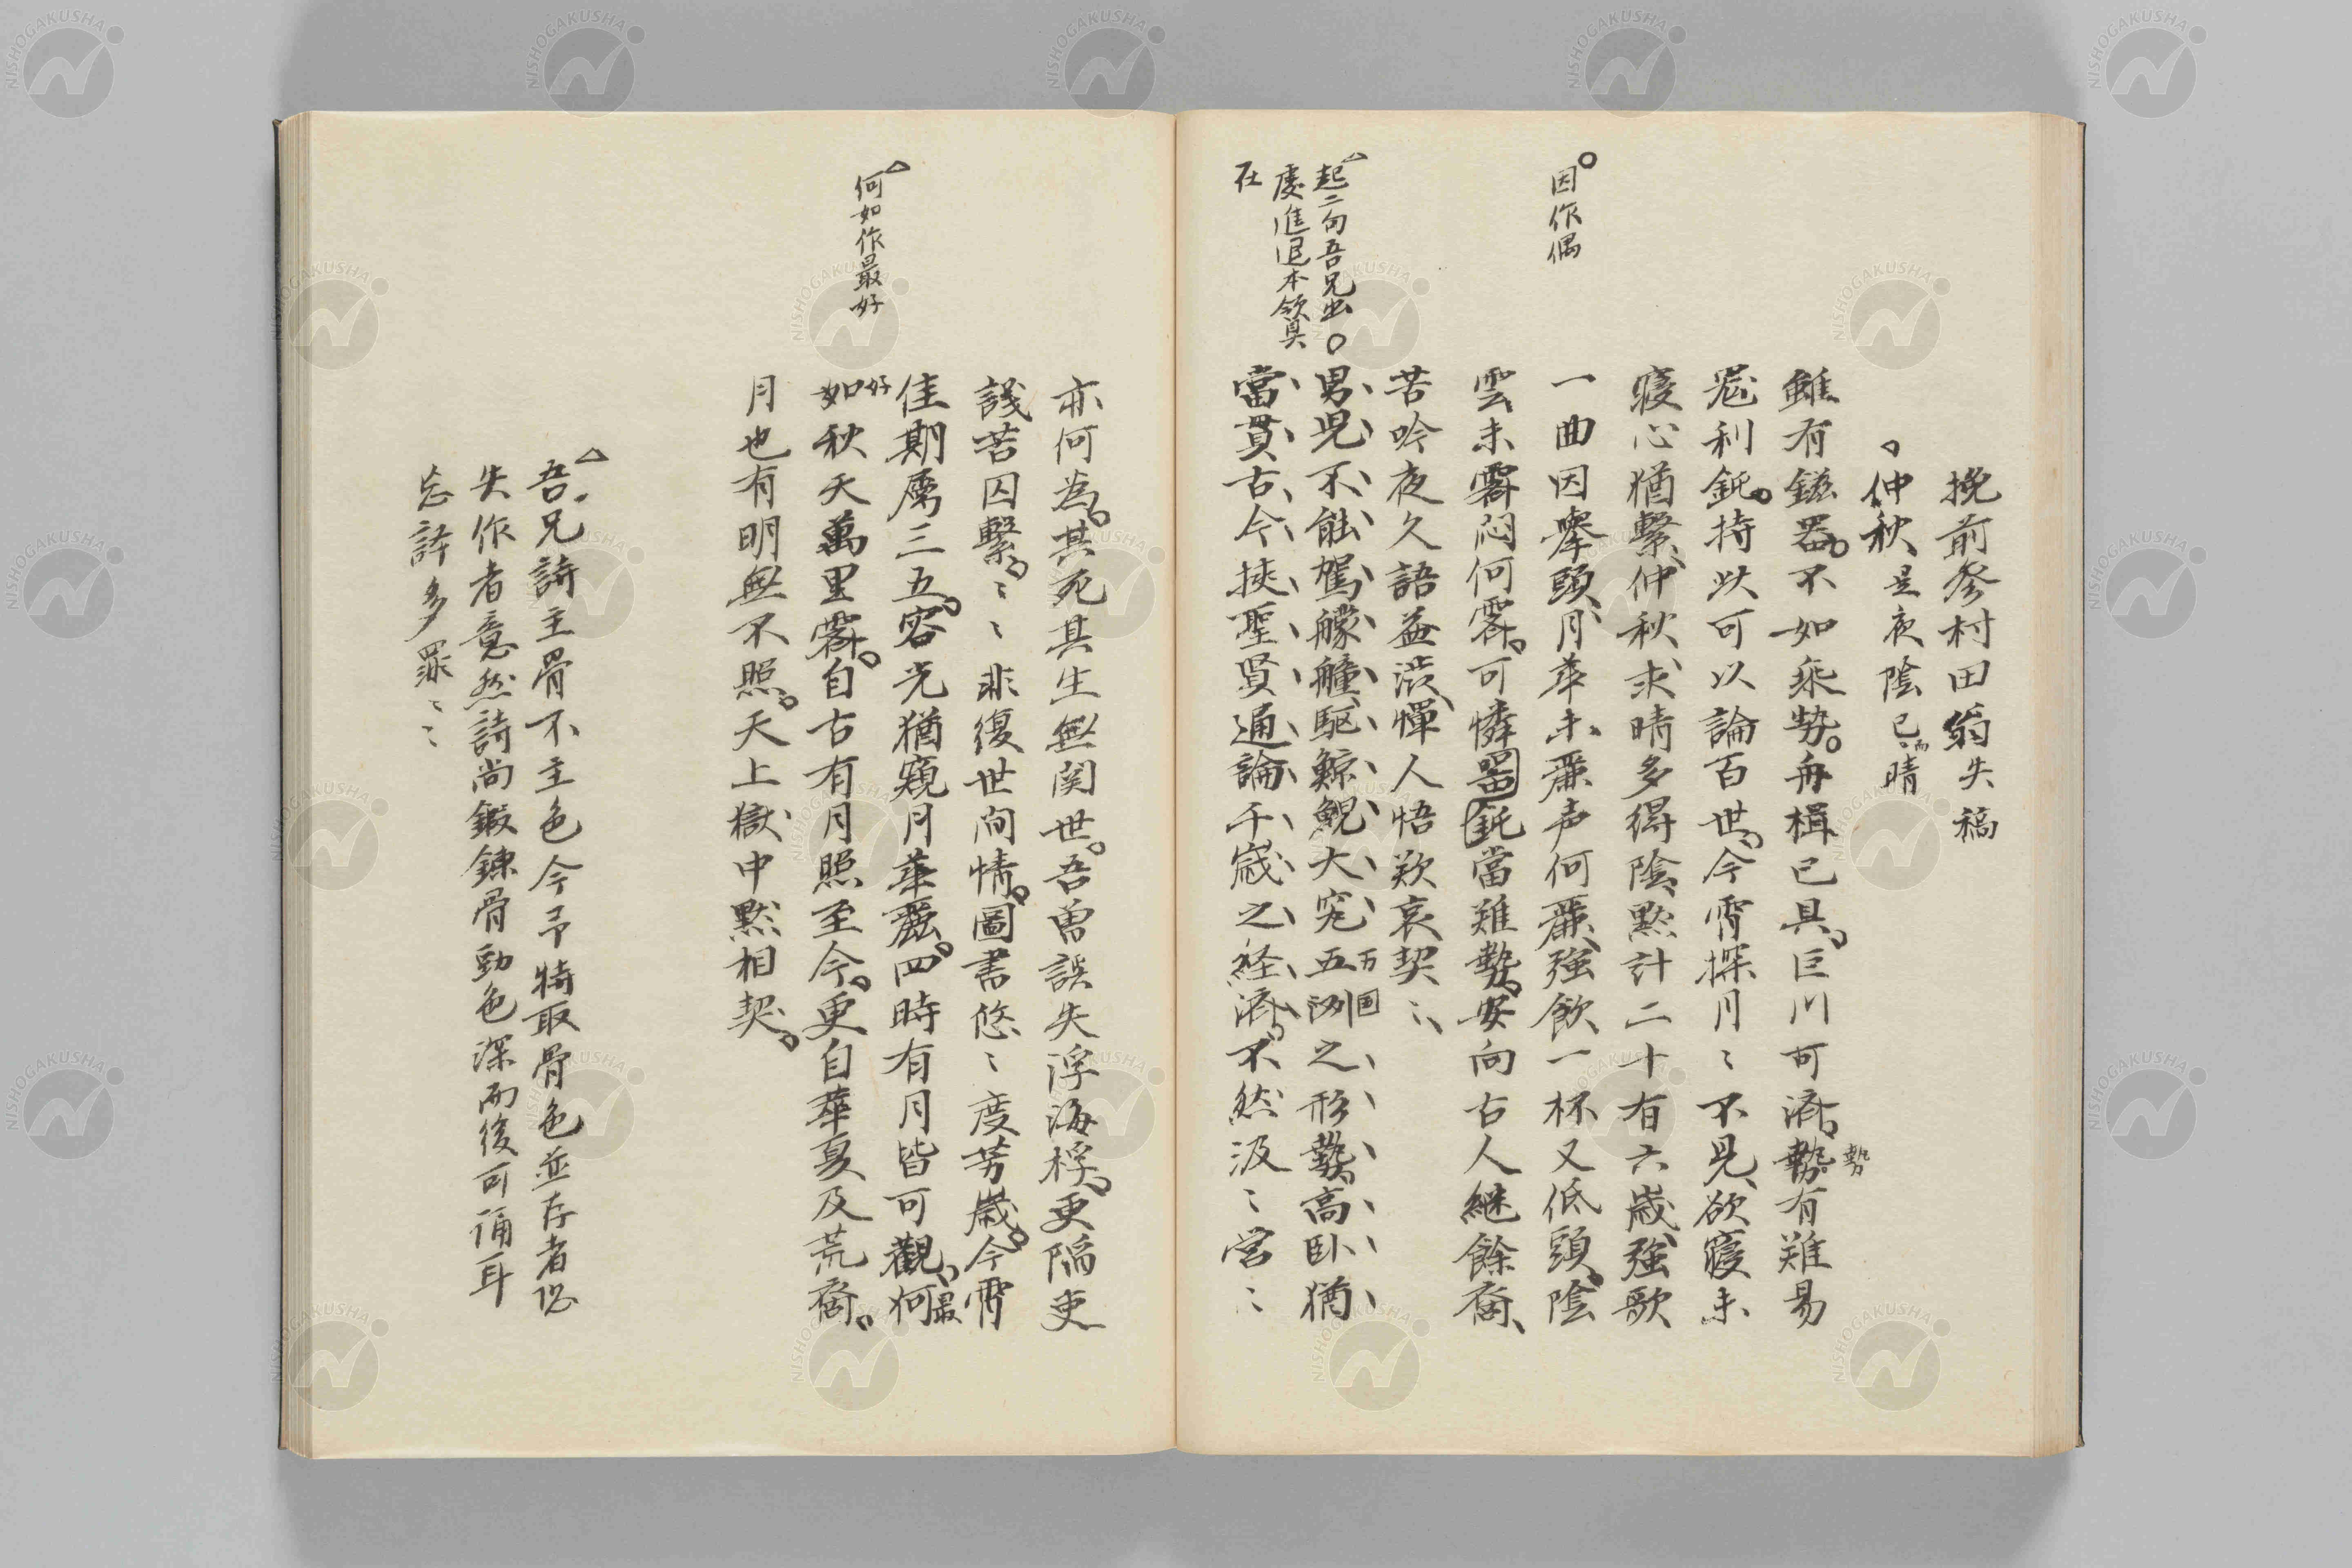 挽前参村田翁失稿
仲秋是夜陰已而晴
雖有鎡器不如乘勢舟楫已具巨川可濟勢有難易
勢
器利鈍持此可以論百世今宵探月〻不見欲寢未
寢心猶繫仲秋求晴多得陰黙計二十有六歳強歌
一曲因擧頭月華未麗声何麗強飲一杯又低頭陰
雲未霽悶何霽可憐器鈍當難勢安向古人継餘裔
苦吟夜久語益澁憚人悟欺哀契〻
男児不能駕艨艟駆鯨鯢大究五洲之形勢高臥猶
万国
當貫古今挾聖賢通論千歳之経済不然汲〻営〻
因作偶
起二句吾兄出
處進退本領具
在
亦何為其死其生無関世吾曽誤失浮海桴更隔吏
議苦囚繫〻〻非復世间情圖書悠〻度芳歳今宵
佳期属三五容光猶窺月華麗四時有月皆可觀何
最
如秋天萬里霽自古有月照至今更自華夏及荒裔
好
月也有明無不照天上獄中黙相契
何如作最好
吾兄詩主骨不主色今予特取骨色並存者恐
失作者意然詩尚鍛錬骨勁色深而後可誦耳
妄評多罪〻〻
NISHOGAKUSHA